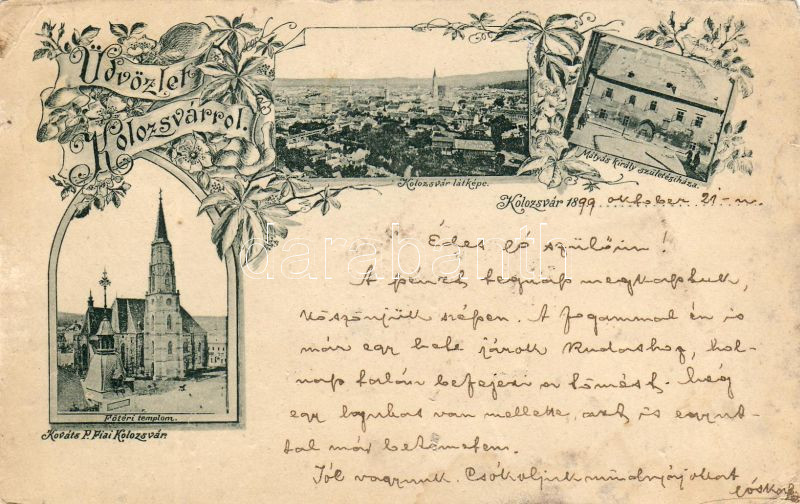 Üdvözlet
Kolozsvárról.
Kolozsvár látképe.
Mátyás király születésiháza.
Kolozsvár 1899 oktober 21-n
Édes jó szülőim!
A pénzt tegnap megkaptuk,
köszönjük szépen. A fogammal én is
már egy hete járok Rudashoz, hol-
nap talán befejezi a tömést. Még
egy lyukas van mellette, azt is egyut-
tal már betömetem.
Jól vagyunk. Csókoljuk mindnyájokat
Főtéri templom.
Kováts P. Fiai Kolozsvár.
darabanth